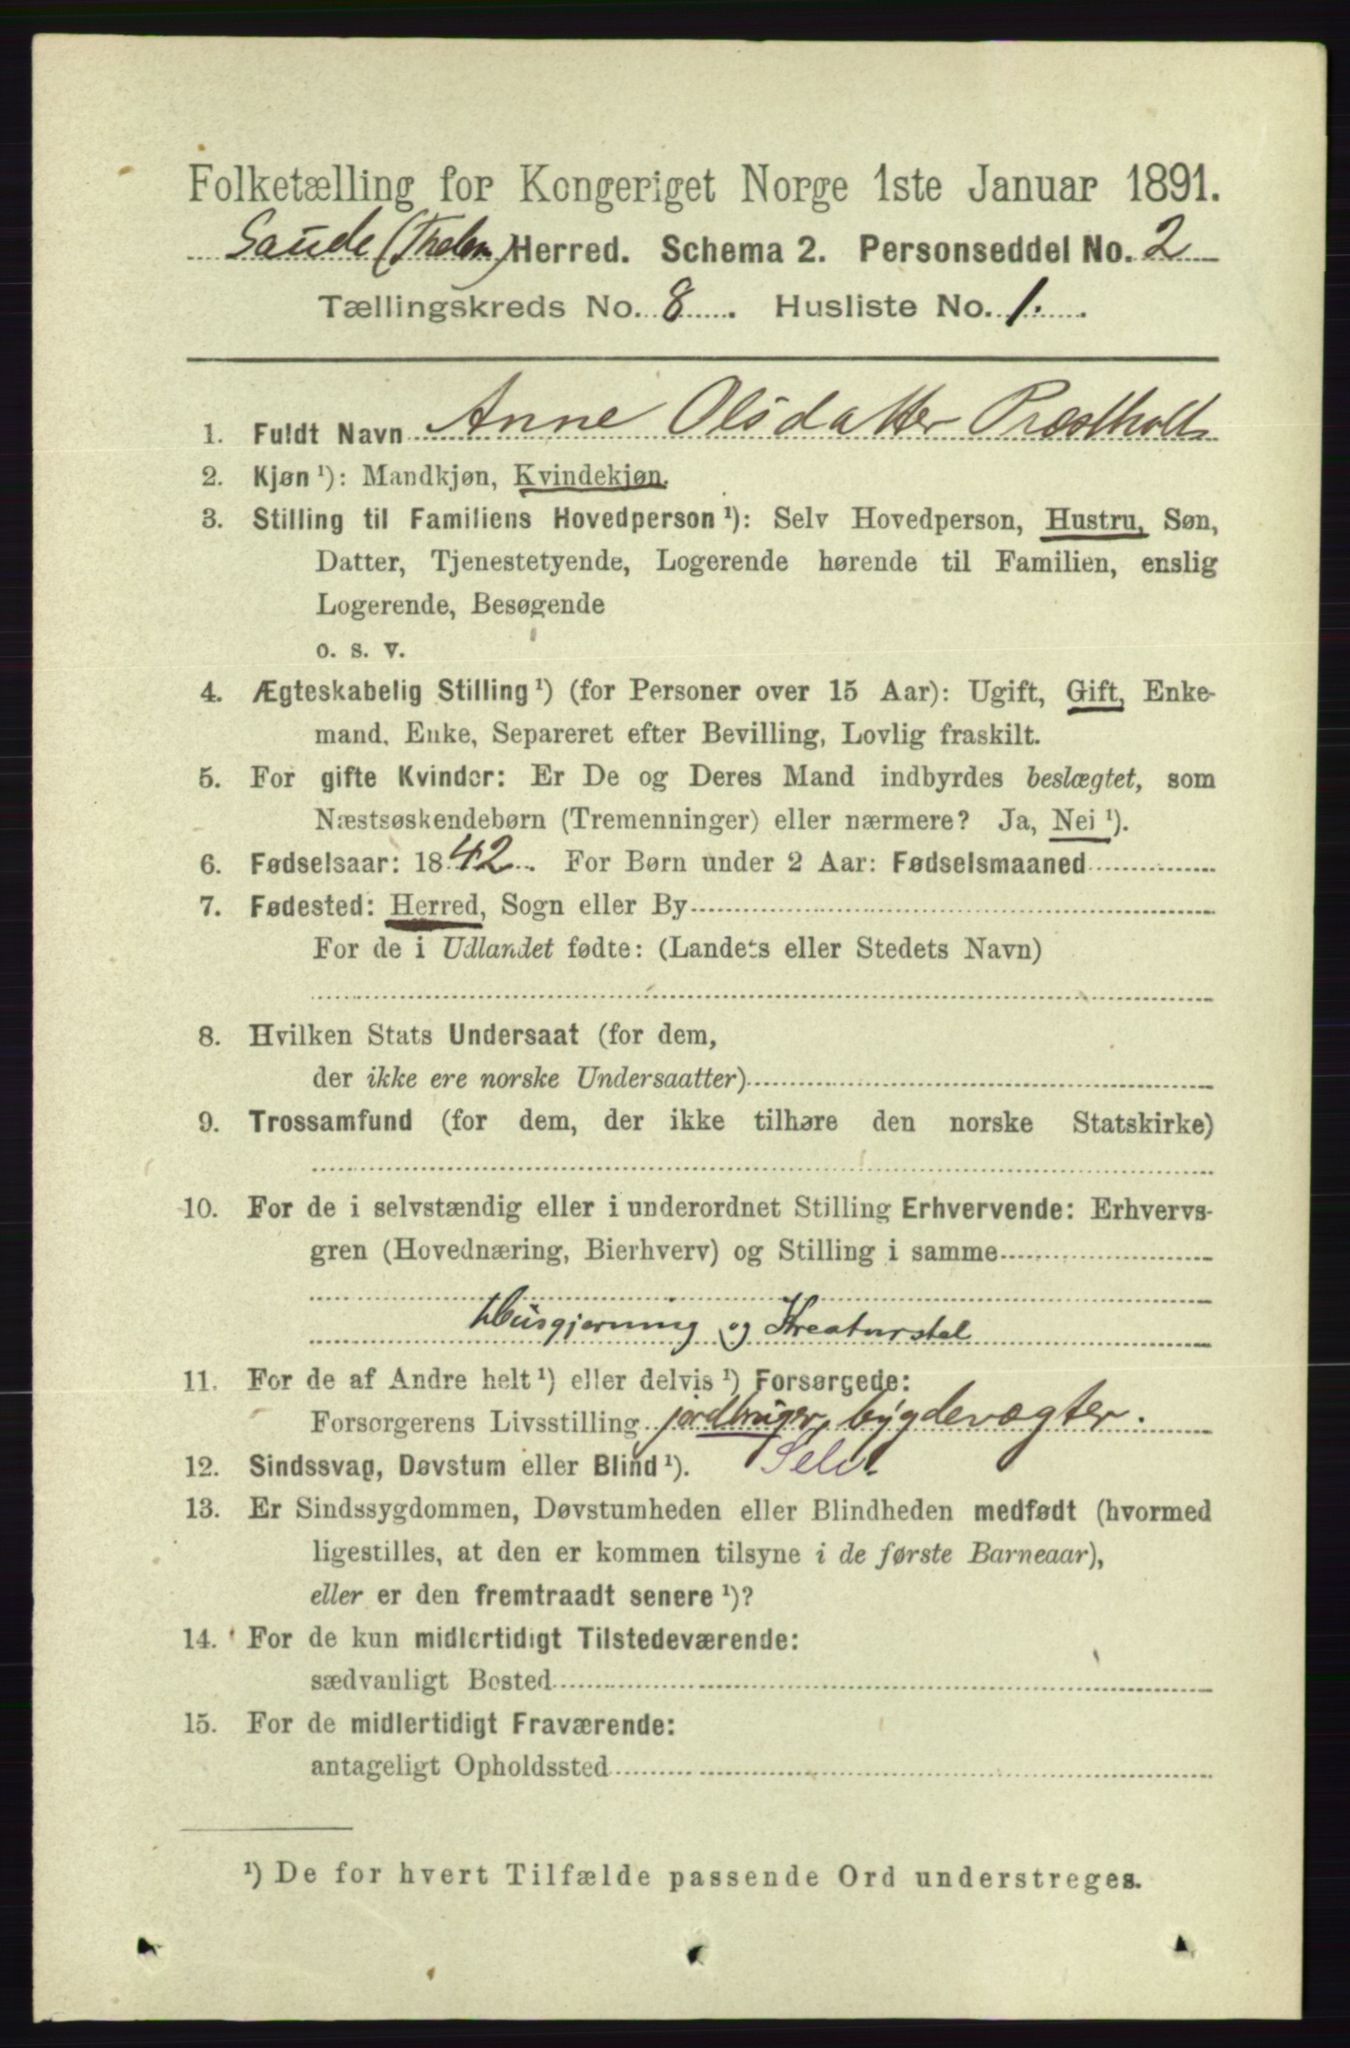 Folketælling for Kongeriget Norge 1ste Januar 1891.
Saude (Thelm) Herred. Schema 2. Personseddel No. 2
Tællingskreds No. 8. Husliste No. 1.
1. Fuldt Navn Anne Olsdatter Præstholt
2. Kjøn ¹): Mandkjøn, Kvindekjøn.
3. Stilling til Familiens Hovedperson ¹): Selv Hovedperson, Hustru, Søn,
Datter, Tjenestetyende, Logerende hørende til Familien, enslig
Logerende, Besøgende
o. s. v.
4. Ægteskabelig Stilling ¹) (for Personer over 15 Aar): Ugift, Gift, Enke-
mand, Enke, Separeret efter Bevilling, Lovlig fraskilt.
5. For gifte Kvinder: Er De og Deres Mand indbyrdes beslægtet, som
Næstsøskendebørn (Tremenninger) eller nærmere? Ja, Nei ¹).
6. Fødselsaar: 1842. For Børn under 2 Aar: Fødselsmaaned
7. Fødested: Herred, Sogn eller By
For de i Udlandet fødte: (Landets eller Stedets Navn)
8. Hvilken Stats Undersaat (for dem,
der ikke ere norske Undersaatter)
9. Trossamfund (for dem, der ikke tilhøre den norske Statskirke)
10. For de i selvstændig eller i underordnet Stilling Erhvervende: Erhvervs-
gren (Hovednæring, Bierhverv) og Stilling i samme
Husgjerning og Kreaturstel
11. For de af Andre helt ¹) eller delvis ¹) Forsørgede:
Forsørgerens Livsstilling jordbruger, bygdevægter.
12. Sindssvag, Døvstum eller Blind ¹). Selv
13. Er Sindssygdommen, Døvstumheden eller Blindheden medfødt (hvormed
ligestilles, at den er kommen tilsyne i de første Barneaar),
eller er den fremtraadt senere ¹)?
14. For de kun midlertidigt Tilstedeværende:
sædvanligt Bosted
15. For de midlertidigt Fraværende:
antageligt Opholdssted
¹) De for hvert Tilfælde passende Ord understreges.